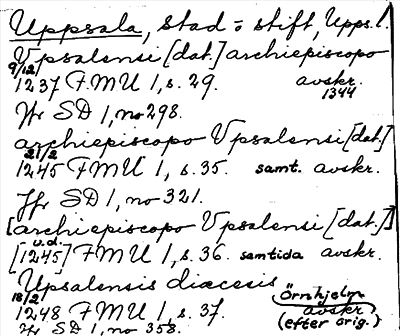 Uppsala, stad o stift, Upps. l.
Vpsalensi [dat.] archiepiscopo
9/12
1237 FMU 1, s. 29. avskr.
1344
Jfr SD 1, no 298.
archiepiscopo Vpsalensi [dat.]
21/2
1245 FMU 1, s. 35. samt. avskr.
Jfr SD 1, no 321.
[archiepiscopo Vpsalensi [dat.]]
u.d.
[1245] FMU 1, s. 36. samtida avskr.
Upsalensis diæcesis
18/2
1248 FMU 1, s. 37. Örnhjelm
avskr.
(efter orig.)
Jfr SD 1, no 358.